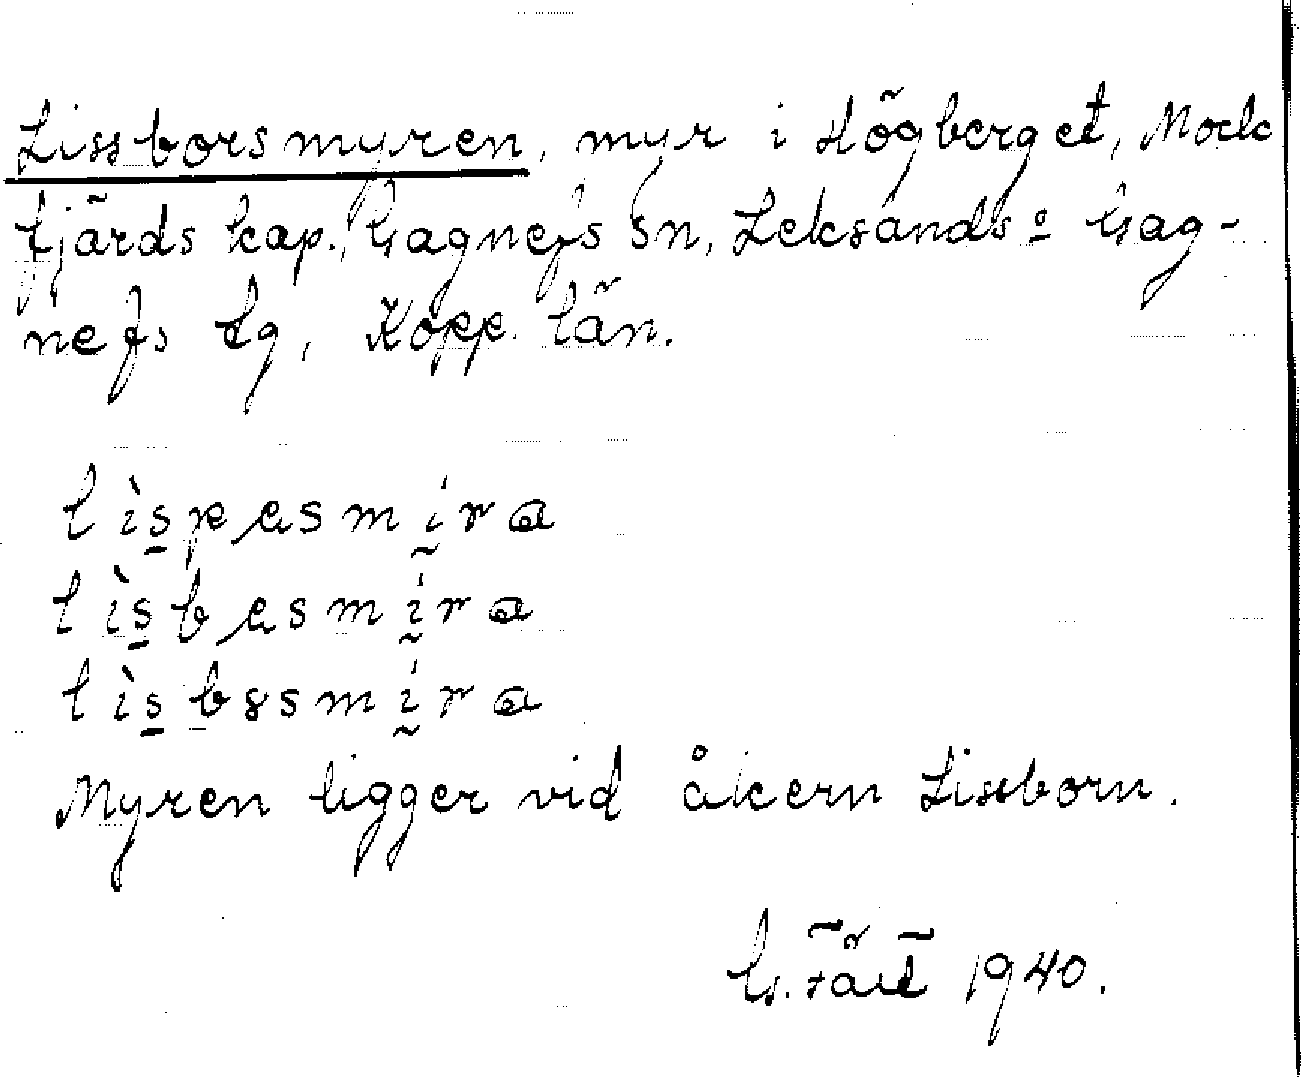 Lissborsmyren, myr i Högberget, Mock
fjärds kap., Gagnefs sn, Leksands o Gag-
nefs tg, Kopp. län.
lìspəsmíra
lìsbəsmíra
lìsbɤsmíra
Myren ligger vid åkern Lissborn.
G. 1940.